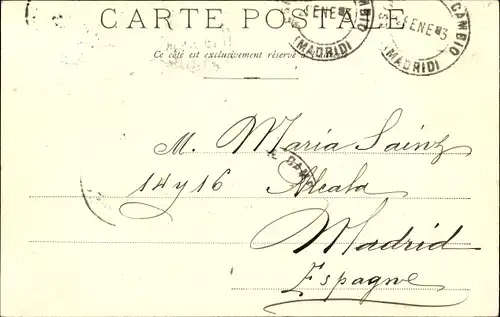 CARTE POSTALE
ENE 03
CAMBIO
(MADRID)
ENE 03
CAMBIO
(MADRID)
Ce côté est exclusivement réservé
M. Maria Sainz
14 y 16 Alcala
Madrid
Espagne